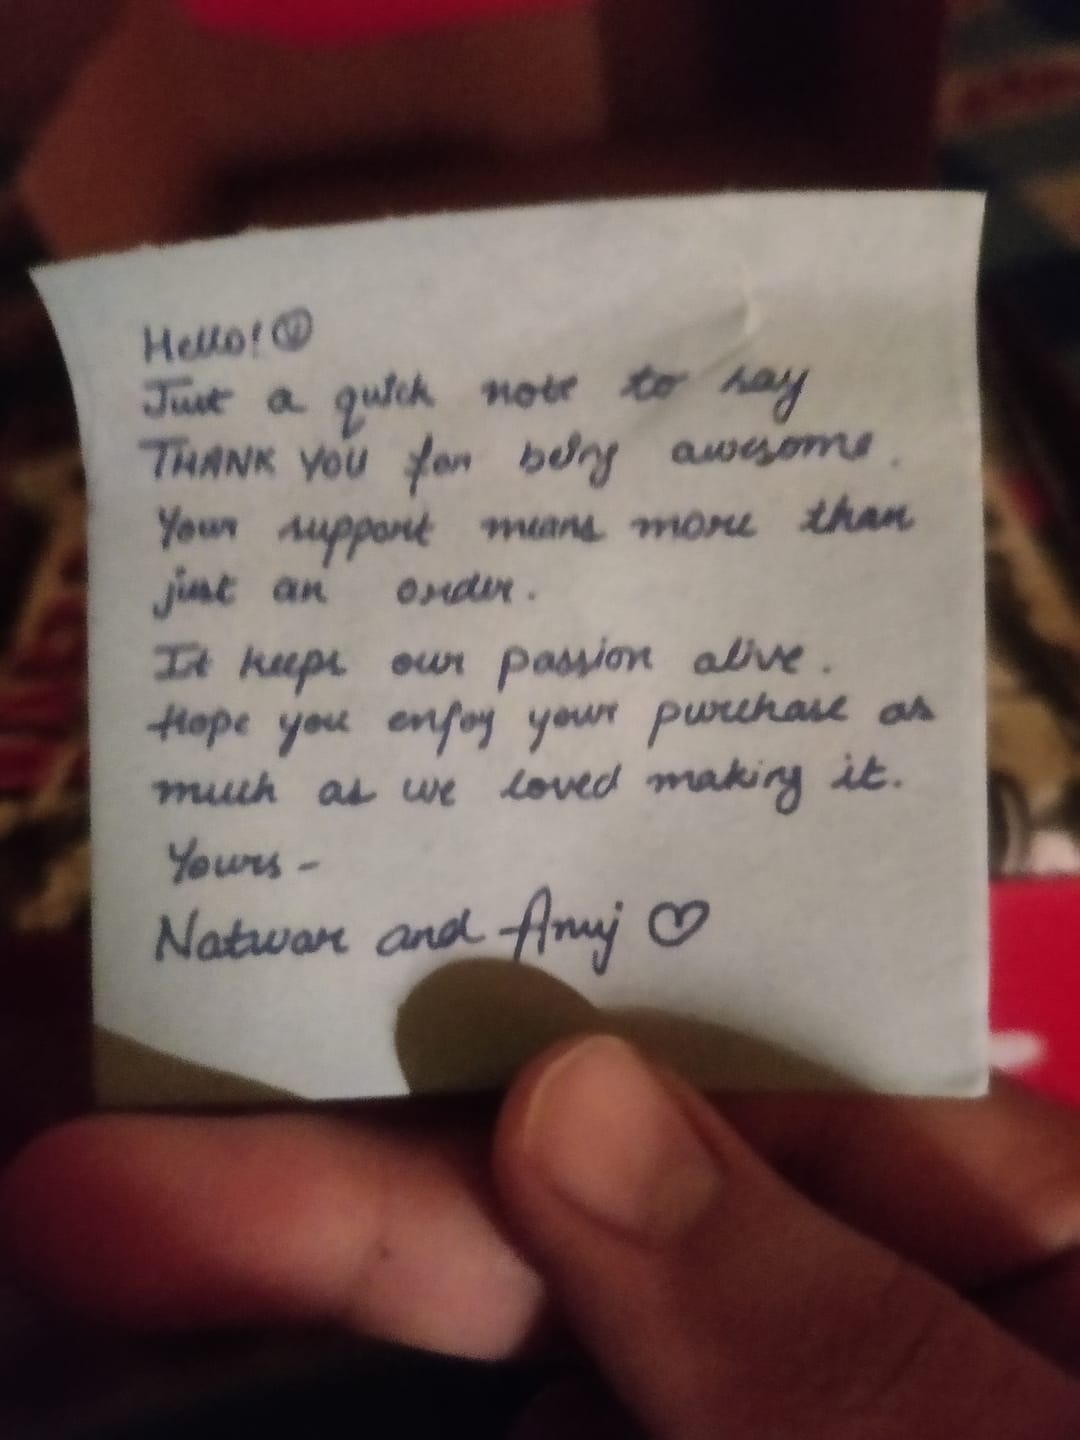 Hello! ☺
Just a quick note to say
THANK YOU for being awesome.
Your support means more than
just an order.
It keeps our passion alive.
Hope you enjoy your purchase as
much as we loved making it.
Yours -
Natwar and Anuj ♡